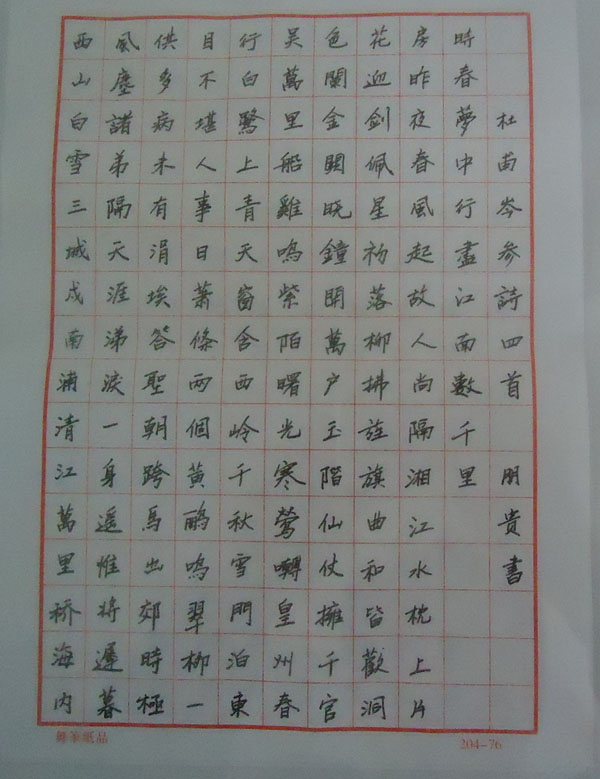 西山白雪三城戍南浦清江萬里桥海内
風塵諸弟隔天涯涕淚一身遥惟將遲暮
供多病未有涓埃答聖朝跨馬出郊時極
目不堪人事日蕭條兩個黃鸝鳴翠柳一
行白鷺上青天窗含西岭千秋雪門泊東
吳萬里船雞鳴紫陌曙光寒鶯囀皇州春
色闌金闕晓鐘開萬户玉階仙仗擁千官
花迎剑佩星初落柳拂旌旗曲和皆歡洞
房昨夜春風起故人尚隔湘江水枕上片
時春夢中行盡江南數千里
杜甫岑參詩四首 朋貴書
筆紙品
204-76